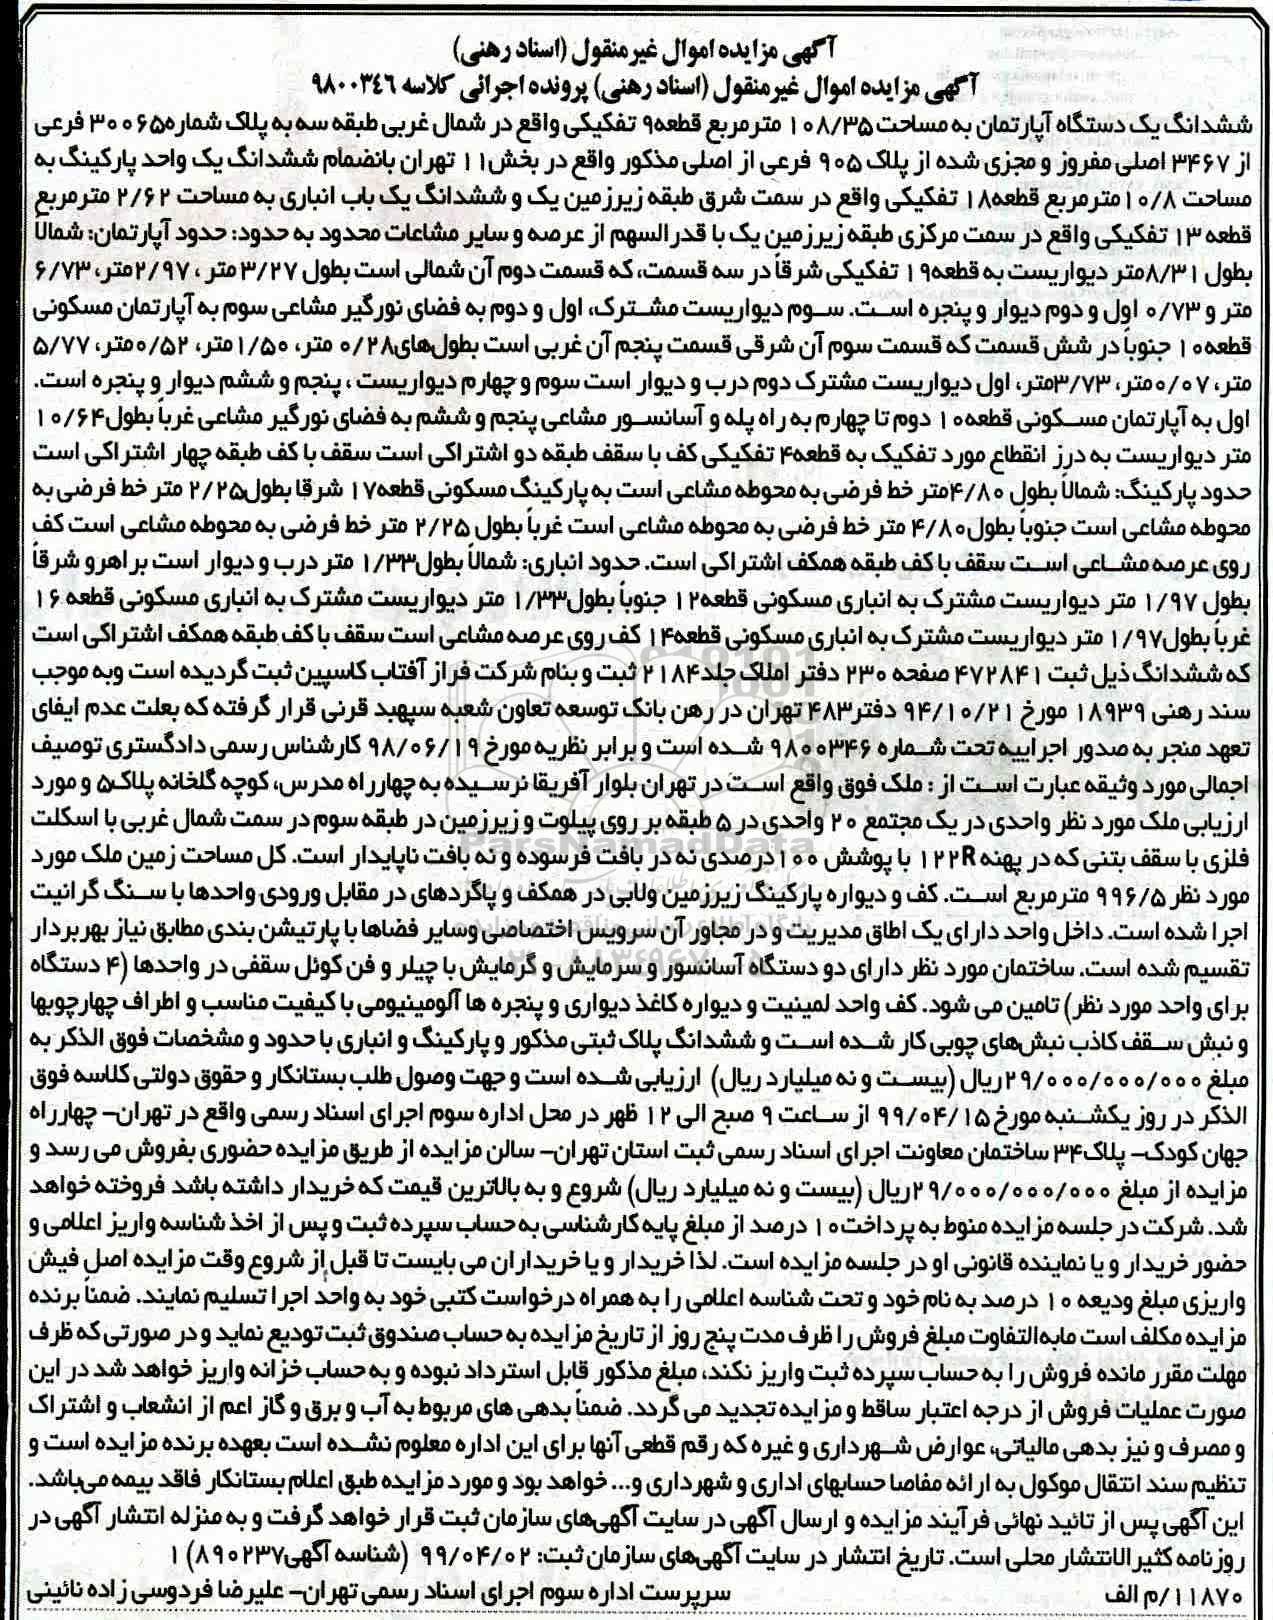 آگهی مزایده اموال غیرمنقول (اسناد رهنی)
آگهی مزایده اموال غیرمنقول (اسناد رهنی) پرونده اجرائی کلاسه ۹۸۰۰۳۴۶
ششدانگ یک دستگاه آپارتمان به مساحت ۱۰۸/۳۵ مترمربع قطعه۹ تفکیکی واقع در شمال غربی طبقه سه به پلاک شماره۳۰۰۶۵ فرعی
از ۳۴۶۷ اصلی مفروز و مجزی شده از پلاک ۹۰۵ فرعی از اصلی مذکور واقع در بخش۱۱ تهران بانضمام ششدانگ یک واحد پارکینگ به
مساحت ۱۰/۸مترمربع قطعه۱۸ تفکیکی واقع در سمت شرق طبقه زیرزمین یک و ششدانگ یک باب انباری به مساحت ۲/۶۲ مترمربع
قطعه ۱۳ تفکیکی واقع در سمت مرکزی طبقه زیرزمین یک با قدرالسهم از عرصه و سایر مشاعات محدود به حدود: حدود آپارتمان: شمالاً
بطول ۸/۳۱متر دیواریست به قطعه۱۹ تفکیکی شرقاً در سه قسمت، که قسمت دوم آن شمالی است بطول ۳/۲۷ متر ، ۲/۹۷متر، ۶/۷۳
متر و ۰/۷۳ اول و دوم دیوار و پنجره است. سوم دیواریست مشترک، اول و دوم به فضای نورگیر مشاعی سوم به آپارتمان مسکونی
قطعه۱۰ جنوباً در شش قسمت که قسمت سوم آن شرقی قسمت پنجم آن غربی است بطول‌های۰/۲۸ متر، ۱/۵۰متر، ۰/۵۲متر، ۵/۷۷
متر، ۰/۰۷متر، ۳/۷۳متر، اول دیواریست مشترک دوم درب و دیوار است سوم و چهارم دیواریست ، پنجم و ششم دیوار و پنجره است.
اول به آپارتمان مسکونی قطعه۱۰ دوم تا چهارم به راه پله و آسانسور مشاعی پنجم و ششم به فضای نورگیر مشاعی غرباً بطول۱۰/۶۴
متر دیواریست به درز انقطاع مورد تفکیک به قطعه۴ تفکیکی کف با سقف طبقه دو اشتراکی است سقف با کف طبقه چهار اشتراکی است
حدود پارکینگ: شمالاً بطول ۴/۸۰متر خط فرضی به محوطه مشاعی است به پارکینگ مسکونی قطعه۱۷ شرقا بطول۲/۲۵ متر خط فرضی به
محوطه مشاعی است جنوباً بطول۴/۸۰ متر خط فرضی به محوطه مشاعی است غرباً بطول ۲/۲۵ متر خط فرضی به محوطه مشاعی است کف
روی عرصه مشاعی است سقف با کف طبقه همکف اشتراکی است. حدود انباری: شمالاً بطول۱/۳۳ متر درب و دیوار است براهرو شرقاً
بطول ۱/۹۷ متر دیواریست مشترک به انباری مسکونی قطعه۱۲ جنوباً بطول۱/۳۳ متر دیواریست مشترک به انباری مسکونی قطعه ۱۶
غرباً بطول۱/۹۷ متر دیواریست مشترک به انباری مسکونی قطعه۱۴ کف روی عرصه مشاعی است سقف با کف طبقه همکف اشتراکی است
که ششدانگ ذیل ثبت ۴۷۲۸۴۱ صفحه ۲۳۰ دفتر املاک جلد۲۱۸۴ ثبت و بنام شرکت فراز آفتاب کاسپین ثبت گردیده است وبه موجب
سند رهنی ۱۸۹۳۹ مورخ ۹۴/۱۰/۲۱ دفتر۴۸۳ تهران در رهن بانک توسعه تعاون شعبه سپهبد قرنی قرار گرفته که بعلت عدم ایفای
تعهد منجر به صدور اجراییه تحت شماره ۹۸۰۰۳۴۶ شده است و برابر نظریه مورخ ۹۸/۰۶/۱۹ کارشناس رسمی دادگستری توصیف
اجمالی مورد وثیقه عبارت است از : ملک فوق واقع است در تهران بلوار آفریقا نرسیده به چهارراه مدرس، کوچه گلخانه پلاک۵ و مورد
ارزیابی ملک مورد نظر واحدی در یک مجتمع ۲۰ واحدی در ۵ طبقه بر روی پیلوت و زیرزمین در طبقه سوم در سمت شمال غربی با اسکلت
فلزی با سقف بتنی که در پهنه R۱۲۲ با پوشش ۱۰۰درصدی نه در بافت فرسوده و نه بافت ناپایدار است. کل مساحت زمین ملک مورد
مورد نظر ۹۹۶/۵ مترمربع است. کف و دیواره پارکینگ زیرزمین ولابی در همکف و پاگردهای در مقابل ورودی واحدها با سنگ گرانیت
اجرا شده است. داخل واحد دارای یک اطاق مدیریت و در مجاور آن سرویس اختصاصی وسایر فضاها با پارتیشن بندی مطابق نیاز بهربردار
تقسیم شده است. ساختمان مورد نظر دارای دو دستگاه آسانسور و سرمایش و گرمایش با چیلر و فن کوئل سقفی در واحدها (۴ دستگاه
برای واحد مورد نظر) تامین می شود. کف واحد لمینیت و دیواره کاغذ دیواری و پنجره ها آلومینیومی با کیفیت مناسب و اطراف چهارچوبها
و نبش سقف کاذب نبش‌های چوبی کار شده است و ششدانگ پلاک ثبتی مذکور و پارکینگ و انباری با حدود و مشخصات فوق الذکر به
مبلغ ۲۹/۰۰۰/۰۰۰/۰۰۰ریال (بیست و نه میلیارد ریال) ارزیابی شده است و جهت وصول طلب بستانکار و حقوق دولتی کلاسه فوق
الذکر در روز یکشنبه مورخ ۹۹/۰۴/۱۵ از ساعت ۹ صبح الی ۱۲ ظهر در محل اداره سوم اجرای اسناد رسمی واقع در تهران– چهارراه
جهان کودک– پلاک۳۴ ساختمان معاونت اجرای اسناد رسمی ثبت استان تهران– سالن مزایده از طریق مزایده حضوری بفروش می رسد و
مزایده از مبلغ ۲۹/۰۰۰/۰۰۰/۰۰۰ریال (بیست و نه میلیارد ریال) شروع و به بالاترین قیمت که خریدار داشته باشد فروخته خواهد
شد. شرکت در جلسه مزایده منوط به پرداخت ۱۰ درصد از مبلغ پایه کارشناسی به حساب سپرده ثبت و پس از اخذ شناسه واریز اعلامی و
حضور خریدار و یا نماینده قانونی او در جلسه مزایده است. لذا خریدار و یا خریداران می بایست تا قبل از شروع وقت مزایده اصل فیش
واریزی مبلغ ودیعه ۱۰ درصد به نام خود و تحت شناسه اعلامی را به همراه درخواست کتبی خود به واحد اجرا تسلیم نمایند. ضمناً برنده
مزایده مکلف است مابه‌التفاوت مبلغ فروش را ظرف مدت پنج روز از تاریخ مزایده به حساب صندوق ثبت تودیع نماید و در صورتی که ظرف
مهلت مقرر مانده فروش را به حساب سپرده ثبت واریز نکند، مبلغ مذکور قابل استرداد نبوده و به حساب خزانه واریز خواهد شد در این
صورت عملیات فروش از درجه اعتبار ساقط و مزایده تجدید می گردد. ضمناً بدهی های مربوط به آب و برق و گاز اعم از انشعاب و اشتراک
و مصرف و نیز بدهی مالیاتی، عوارض شهرداری و غیره که رقم قطعی آنها برای این اداره معلوم نشده است بعهده برنده مزایده است و
تنظیم سند انتقال موکول به ارائه مفاصا حسابهای اداری و شهرداری و... خواهد بود و مورد مزایده طبق اعلام بستانکار فاقد بیمه می‌باشد.
این آگهی پس از تائید نهائی فرآیند مزایده و ارسال آگهی در سایت آگهی‌های سازمان ثبت قرار خواهد گرفت و به منزله انتشار آگهی در
روزنامه کثیرالانتشار محلی است. تاریخ انتشار در سایت آگهی‌های سازمان ثبت: ۹۹/۰۴/۰۲ (شناسه آگهی۸۹۰۲۳۷) ۱
۱۱۸۷۰/م الف سرپرست اداره سوم اجرای اسناد رسمی تهران– علیرضا فردوسی زاده نائینی
ParsNamadData